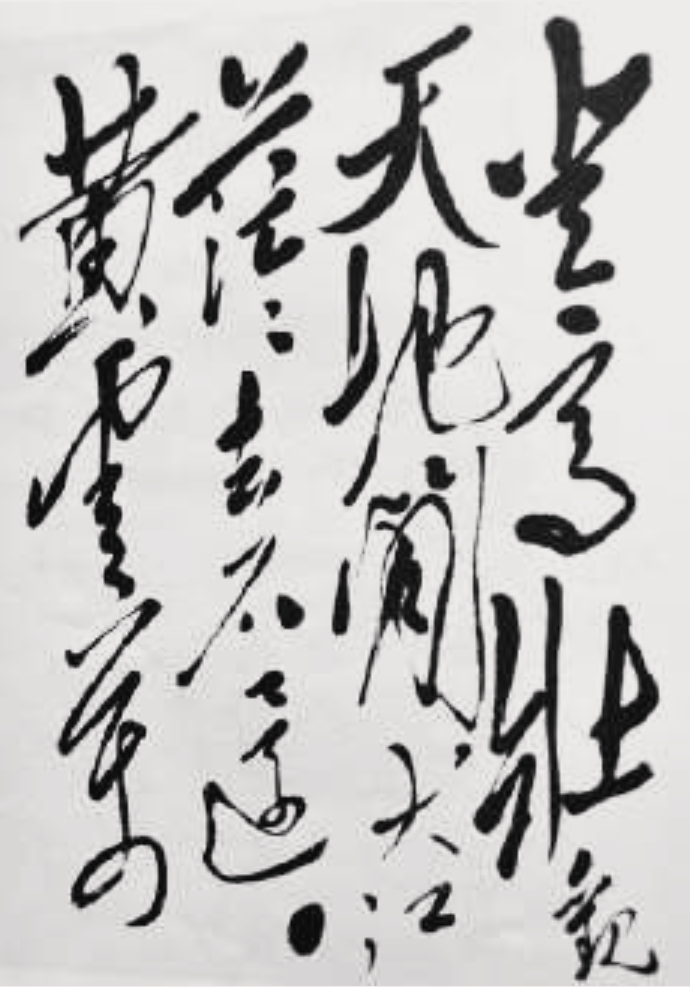 登高壮观
天地间大江
茫茫去不还
黄云万